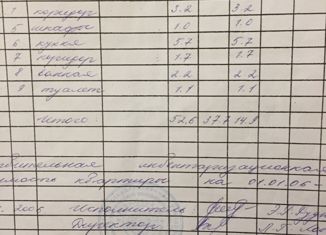 коридор 3.2 3.2
5 шкафы 1.0 1.0
6 кухня 5.7 5.7
7 коридор 1.7 1.7
8 ванная 2.2 2.2
9 туалет 1.1 1.1
Итого: 52.6 37.7 14.9
инвентаризационная
квартиры на 01.01.06 -
2006 Исполнитель:
Директор: